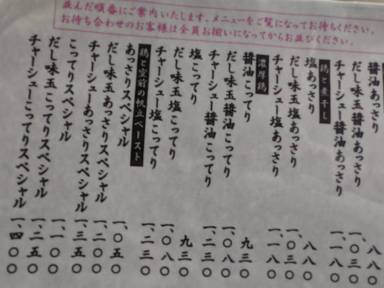 並んだ順番にご案内いたします、メニューをご覧になってお待ちください。
お待ち合わせのお客様は全員お揃いになってからお並びください。
醤油あっさり 八八〇
だし味玉醤油あっさり 一、〇三〇
チャーシュー醤油あっさり 一、一八〇
鶏と煮干し
塩あっさり 八八〇
だし味玉塩あっさり 一、〇三〇
チャーシュー塩あっさり 一、一八〇
濃厚鶏
醤油こってり 九三〇
だし味玉醤油こってり 一、〇八〇
チャーシュー醤油こってり 一、二三〇
塩こってり 九三〇
だし味玉塩こってり 一、〇八〇
チャーシュー塩こってり 一、二三〇
鶏と宝前の帆立ペースト
あっさりスペシャル 一、〇五〇
だし味玉あっさりスペシャル 一、二〇〇
チャーシューあっさりスペシャル 一、三五〇
こってりスペシャル 一、一〇〇
だし味玉こってりスペシャル 一、二五〇
チャーシューこってりスペシャル 一、四〇〇